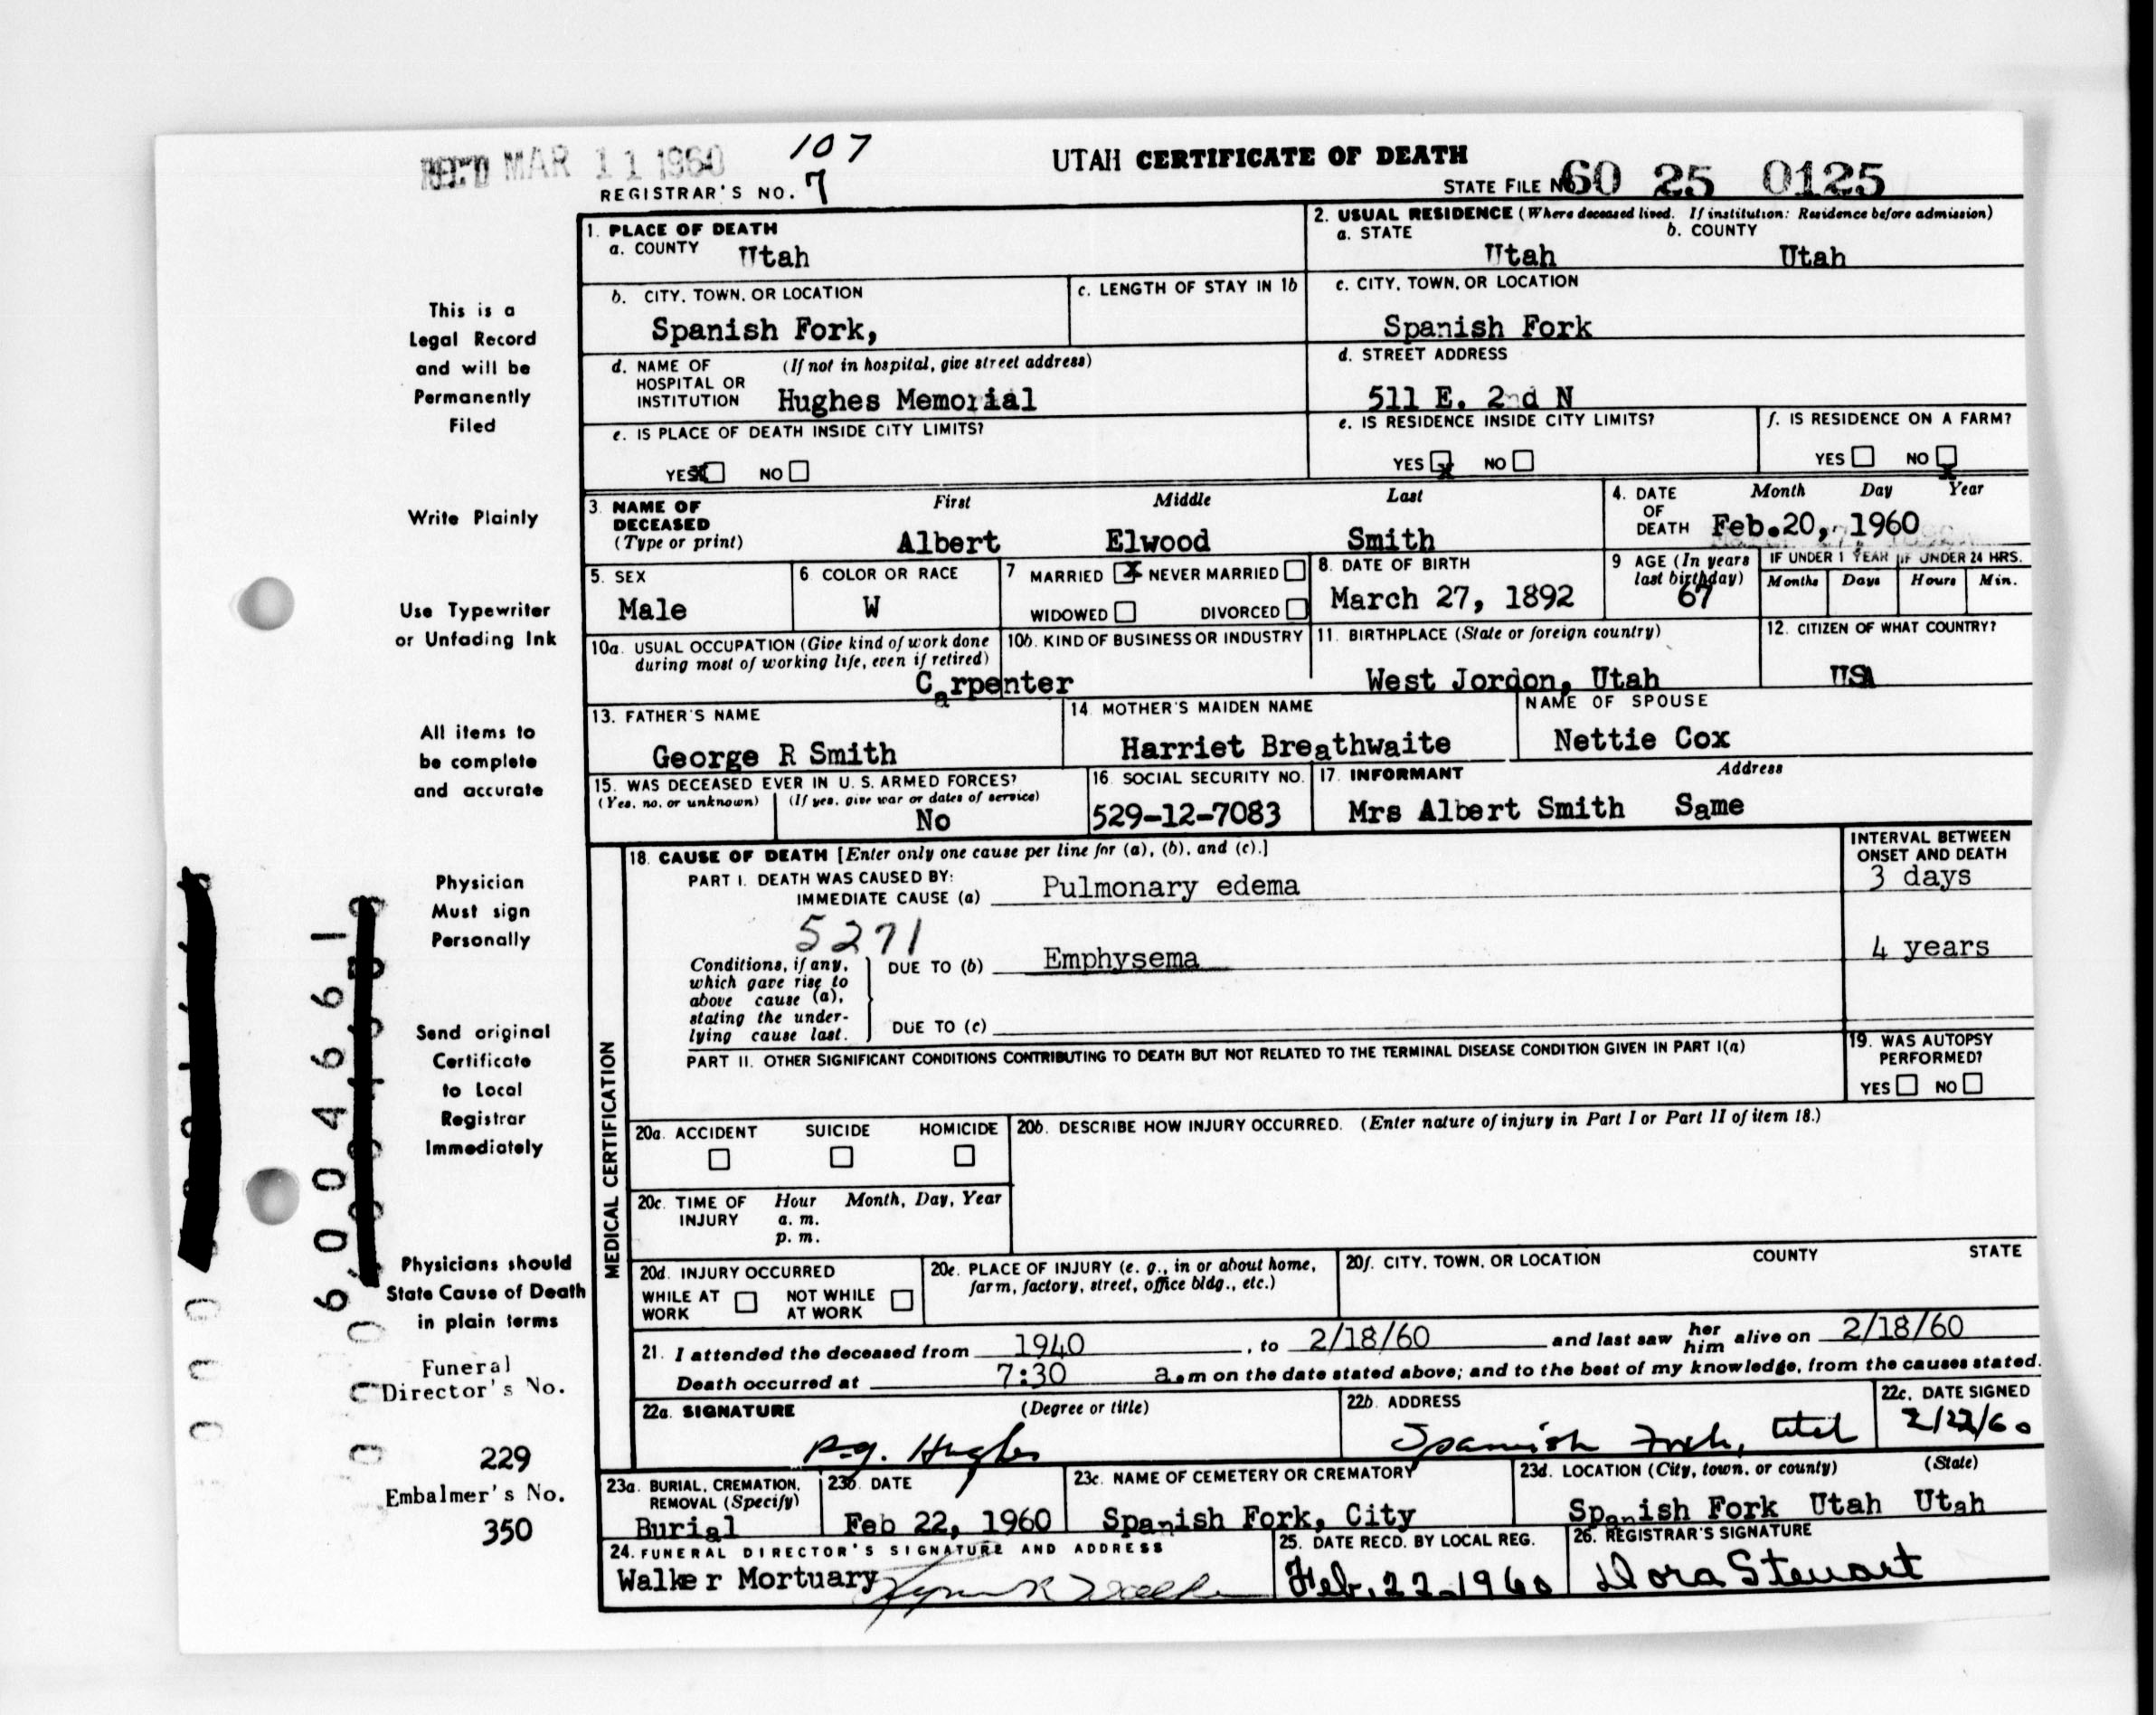 REC'D MAR 11 1960
107
UTAH CERTIFICATE OF DEATH
REGISTRAR'S NO. 7
STATE FILE NO 60 25 0125
This is a
Legal Record
and will be
Permanently
Filed
Write Plainly
Use Typewriter
or Unfading Ink
All items to
be complete
and accurate
Physician
Must sign
Personally
Send original
Certificate
to Local
Registrar
Immediately
Physicians should
State Cause of Death
in plain terms
Funeral
Director's No.
229
Embalmer's No.
350
1. PLACE OF DEATH
a. COUNTY Utah
2. USUAL RESIDENCE (Where deceased lived. If institution: Residence before admission)
a. STATE Utah b. COUNTY Utah
b. CITY, TOWN, OR LOCATION
Spanish Fork,
c. LENGTH OF STAY IN 1b
c. CITY, TOWN, OR LOCATION
Spanish Fork
d. NAME OF HOSPITAL OR INSTITUTION (If not in hospital, give street address)
Hughes Memorial
d. STREET ADDRESS
511 E. 2nd N
e. IS PLACE OF DEATH INSIDE CITY LIMITS?
YES X NO
e. IS RESIDENCE INSIDE CITY LIMITS?
YES X NO
f. IS RESIDENCE ON A FARM?
YES NO X
3. NAME OF DECEASED (Type or print)
First Middle Last
Albert Elwood Smith
4. DATE OF DEATH Month Day Year
Feb.20, 1960
5. SEX
Male
6. COLOR OR RACE
W
7 MARRIED X NEVER MARRIED
WIDOWED DIVORCED
8. DATE OF BIRTH
March 27, 1892
9 AGE (In years last birthday)
67
IF UNDER 1 YEAR IF UNDER 24 HRS.
Months Days Hours Min.
10a. USUAL OCCUPATION (Give kind of work done
during most of working life, even if retired)
Carpenter
10b. KIND OF BUSINESS OR INDUSTRY
11. BIRTHPLACE (State or foreign country)
West Jordon, Utah
12. CITIZEN OF WHAT COUNTRY?
USA
13. FATHER'S NAME
George R Smith
14. MOTHER'S MAIDEN NAME
Harriet Breathwaite
NAME OF SPOUSE
Nettie Cox
15. WAS DECEASED EVER IN U. S. ARMED FORCES?
(Yes, no, or unknown) (If yes, give war or dates of service)
No
16. SOCIAL SECURITY NO.
529-12-7083
17. INFORMANT Address
Mrs Albert Smith Same
MEDICAL CERTIFICATION
18. CAUSE OF DEATH [Enter only one cause per line for (a), (b), and (c).]
INTERVAL BETWEEN
ONSET AND DEATH
PART I. DEATH WAS CAUSED BY:
IMMEDIATE CAUSE (a) Pulmonary edema 3 days
5271
Conditions, if any,
which gave rise to
above cause (a),
stating the under-
lying cause last.
DUE TO (b) Emphysema 4 years
DUE TO (c)
PART II. OTHER SIGNIFICANT CONDITIONS CONTRIBUTING TO DEATH BUT NOT RELATED TO THE TERMINAL DISEASE CONDITION GIVEN IN PART I(a)
19. WAS AUTOPSY
PERFORMED?
YES NO
20a. ACCIDENT SUICIDE HOMICIDE
20b. DESCRIBE HOW INJURY OCCURRED. (Enter nature of injury in Part I or Part II of item 18.)
20c. TIME OF INJURY Hour Month, Day, Year
a. m.
p. m.
20d. INJURY OCCURRED
WHILE AT WORK NOT WHILE AT WORK
20e. PLACE OF INJURY (e. g., in or about home,
farm, factory, street, office bldg., etc.)
20f. CITY, TOWN, OR LOCATION COUNTY STATE
21. I attended the deceased from 1940, to 2/18/60 and last saw her him alive on 2/18/60
Death occurred at 7:30 a.m on the date stated above; and to the best of my knowledge, from the causes stated.
22a. SIGNATURE (Degree or title)
P.G. Hughes
22b. ADDRESS
Spanish Fork, Utah
22c. DATE SIGNED
2/22/60
23a. BURIAL, CREMATION,
REMOVAL (Specify)
Burial
23b. DATE
Feb 22, 1960
23c. NAME OF CEMETERY OR CREMATORY
Spanish Fork, City
23d. LOCATION (City, town, or county) (State)
Spanish Fork Utah Utah
24. FUNERAL DIRECTOR'S SIGNATURE AND ADDRESS
Walker Mortuary
25. DATE RECD. BY LOCAL REG.
Feb. 22-1960
26. REGISTRAR'S SIGNATURE
Dora Stewart
6,0 0 4 6 6 1